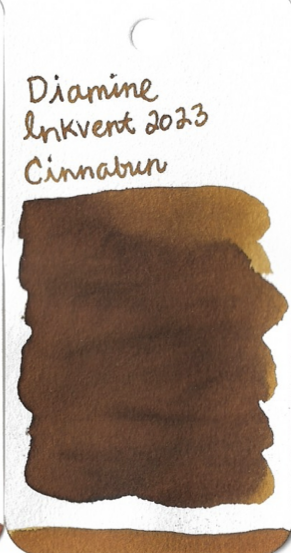 Diamine
Inkvent 2023
Cinnabun